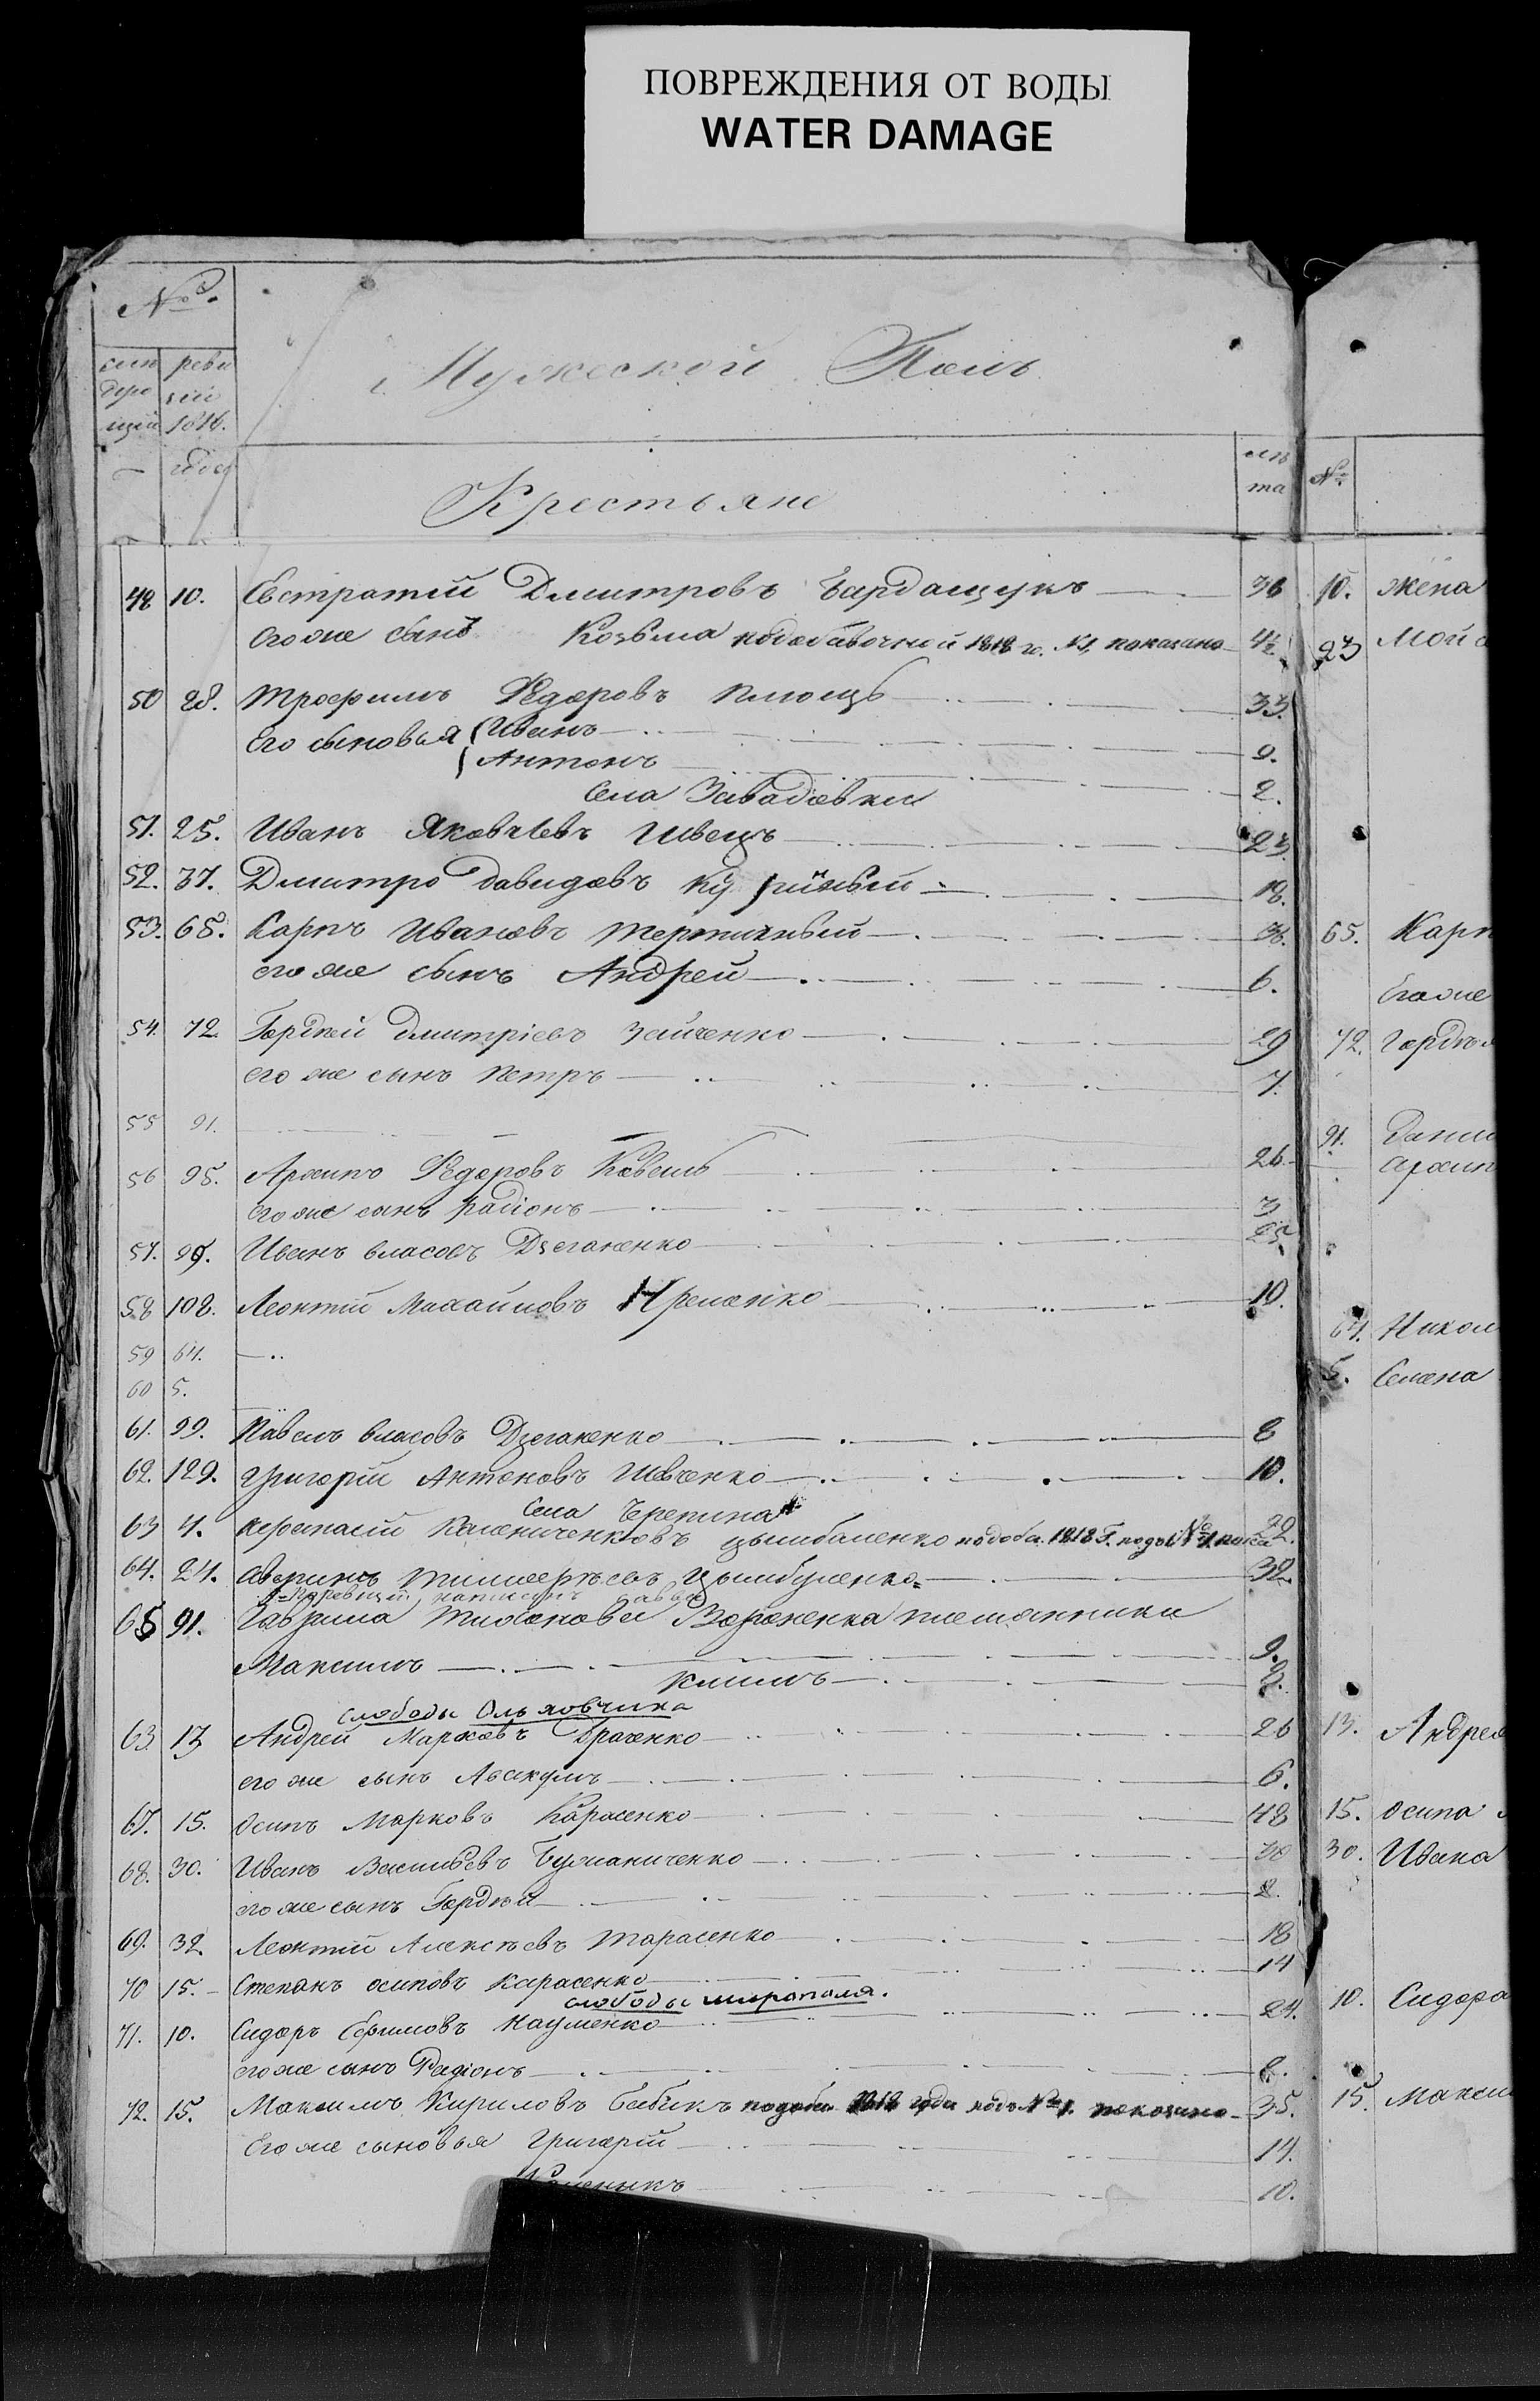 ПОВРЕЖДЕНИЯ ОТ ВОДЫ
WATER DAMAGE
№
реви
зіи
1816.
года
Мужеской Полъ
лѣ
та
№
Крестьяне
48 10. Евстратий Дмитровъ Бардащукъ 36
его же сынъ Козьма 1818 г. №1, показано 4½
50 28. Трофимъ Федоровъ Плющъ 33.
Его сыновья Иванъ 9.
Антонъ 2.
Села Завадовки
51. 25. Иванъ Яковлевъ Швецъ 23.
52. 37. Дмитро Давидовъ 18.
53. 65. Карпъ Ивановъ Тертичный 36.
его же сынъ Андрей 6.
54. 72. Гордей Дмитріевъ Зайченко 29
его же сынъ Петръ 7.
55 91.
56 95. Архипъ Федоровъ Ковель 26
его же сынъ Радіонъ 3
57. 99. Иванъ Власовъ Дзеганенко 25.
58 108. Леонтій Михайловъ 10.
59 64.
60 5.
61. 99. Павелъ Власовъ Дзеганенко 8
62. 129. Григорій Антоновъ Шевченко 10.
Села Черепина
63 4. Калениченковъ Цымбаленко 1818 г. подъ №1 22.
64. 24. 32.
65 91. Гаврила Вороненка племянники
Максимъ 9.
Климъ
слободы Ольховчика
63. 13 Андрей Марковъ Драченко 26
его же сынъ Авакумъ 6.
67. 15. Осипъ Марковъ Карасенко 48
68. 30. Иванъ Васильевъ 30
его же сынъ Гордѣй 2.
69. 32. Леонтій Алексѣевъ Тарасенко 18
70 15. Степанъ Осиповъ Карасенко 14
слободы Шираполя.
71. 10. Сидоръ Ефимовъ Науменко 24.
его же сынъ Радіонъ 2.
72. 15. Максимъ Кириловъ Бабикъ 1818 года подъ №1. показано 35.
Его же сыновья Григорій 14.
10.
10. жена
23
65. Карп
Его же
72. Гордѣя
91. Дани
Архип
64. Никол
5. Семена
13. Андрея
15. Осипа
30. Ивана
10. Сидора
15. Макси